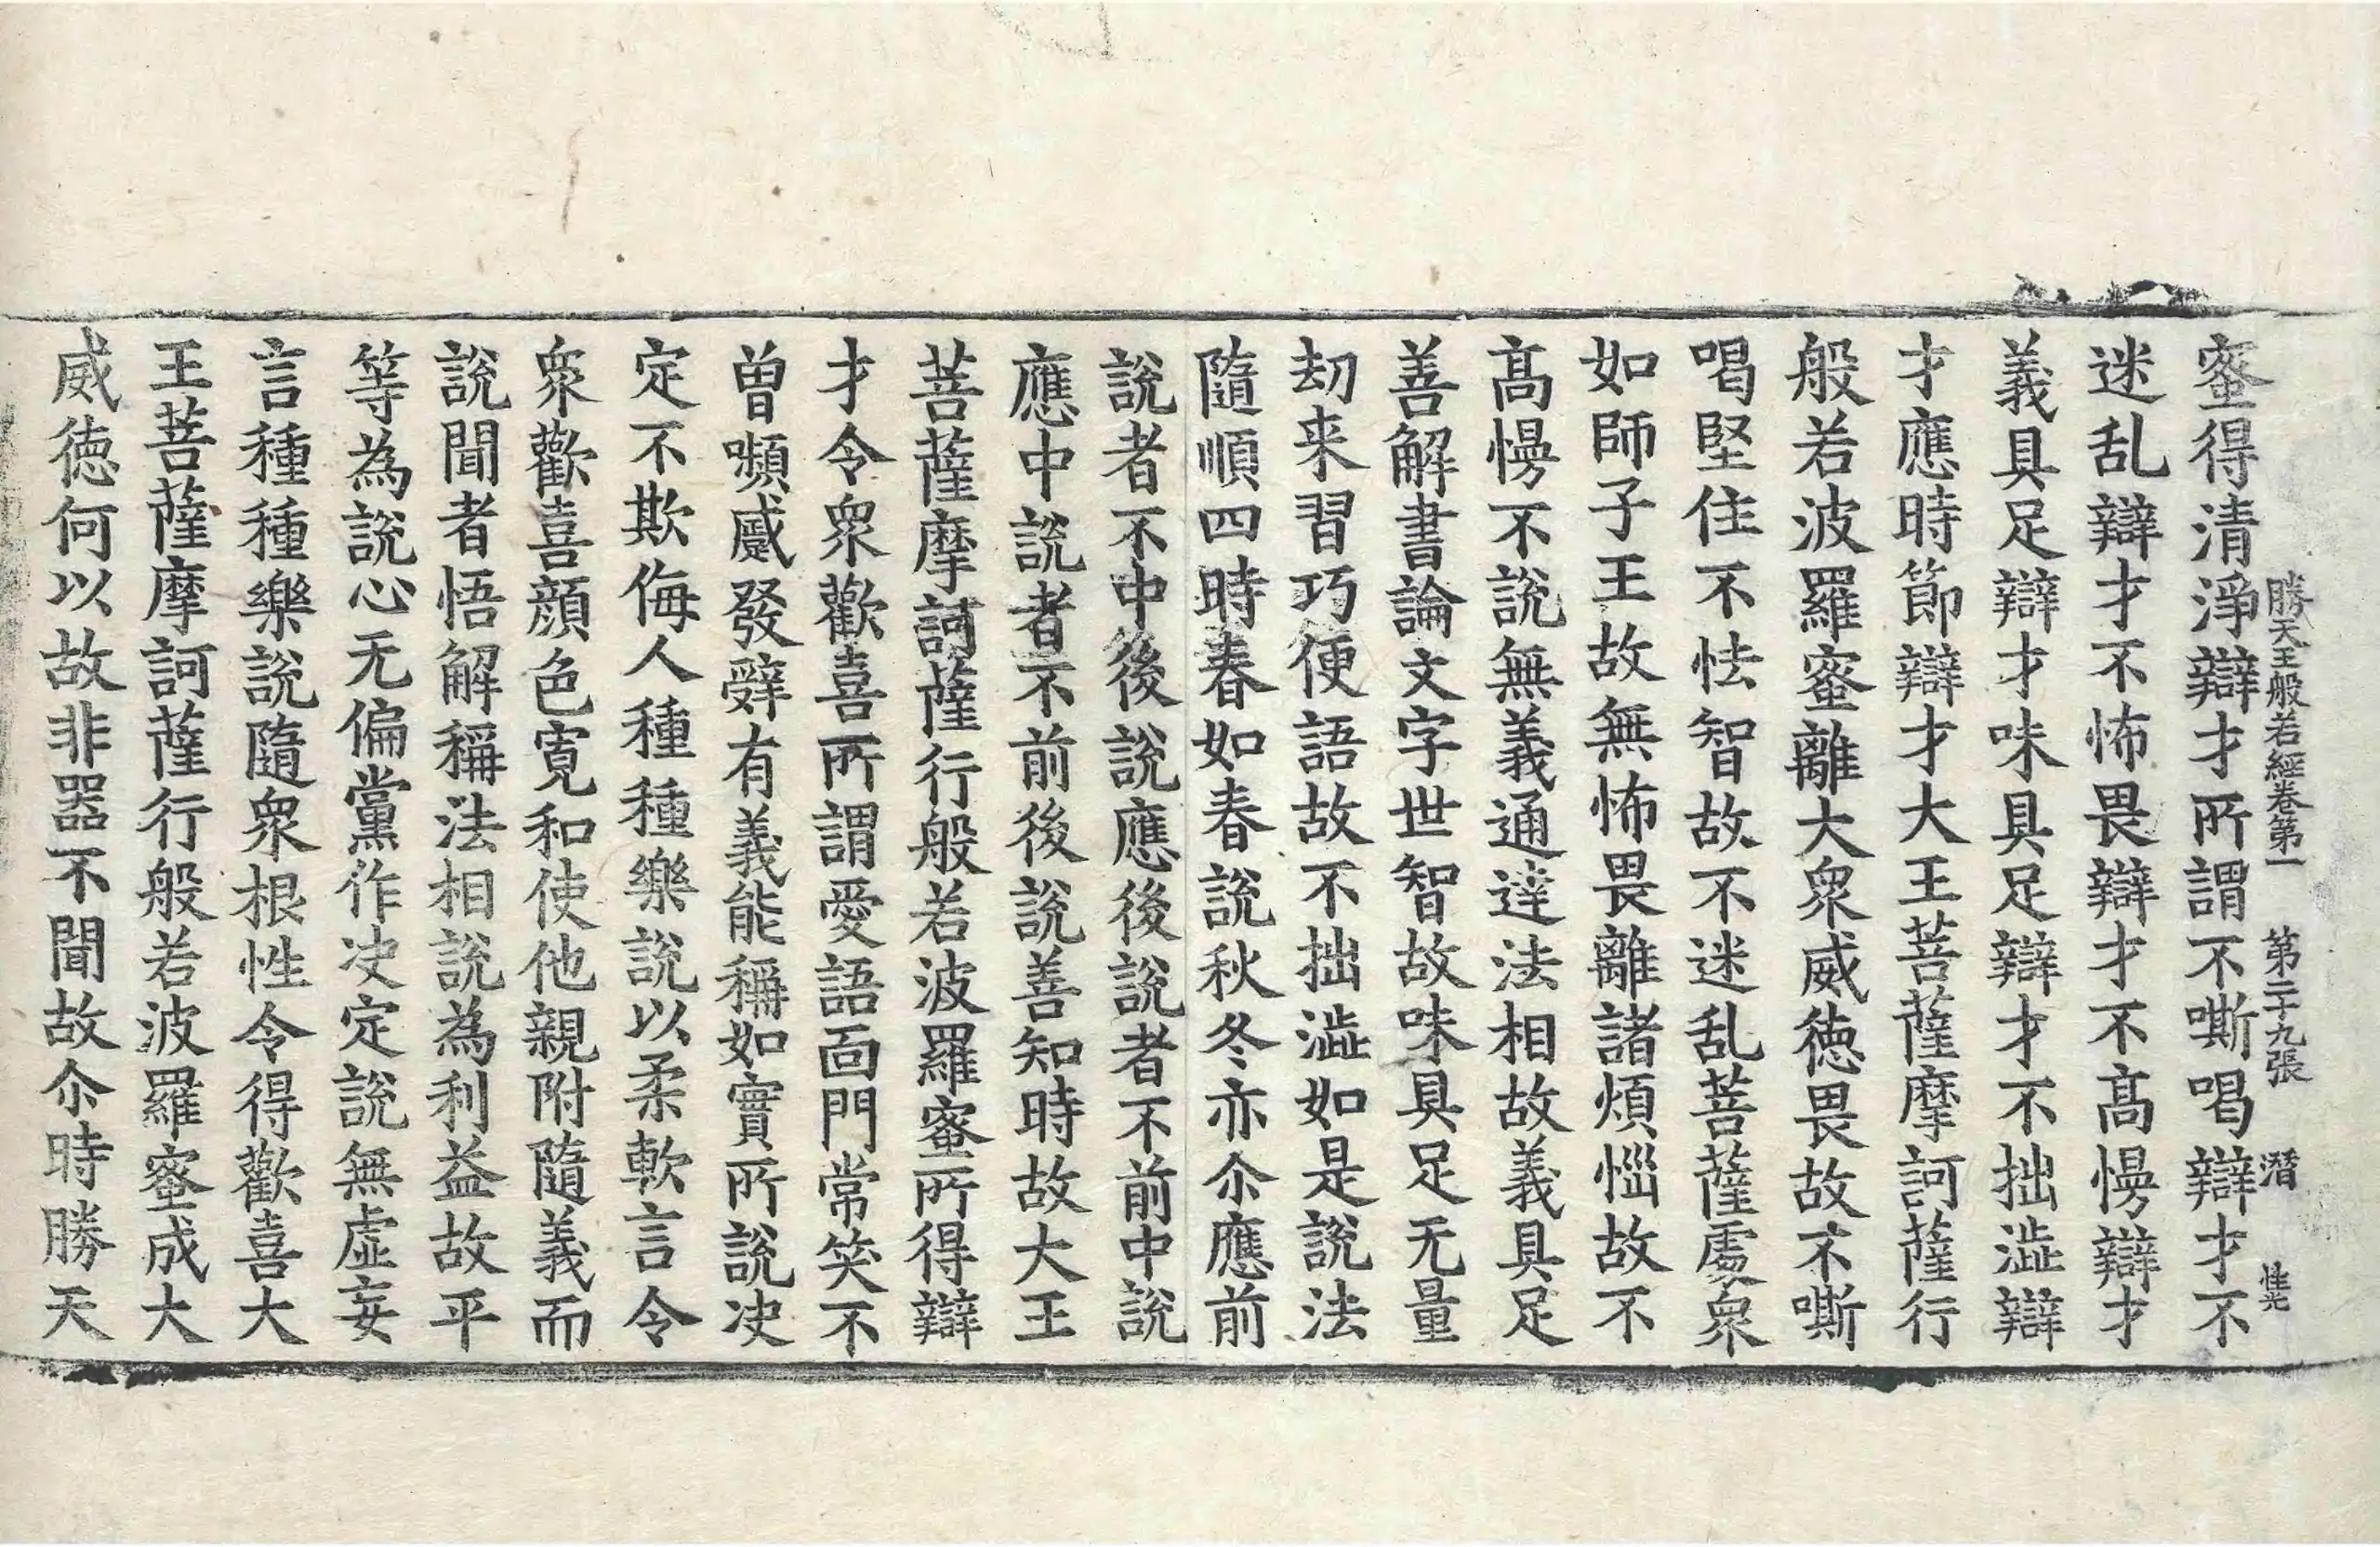 勝天王般若經卷第一 第二十九張 潛 惟光
蜜得清淨辯才所謂不嘶喝辯才不
迷乱辯才不怖畏辯才不髙慢辯才
義具足辯才味具足辯才不拙澁辯
才應時節辯才大王菩薩摩訶薩行
般若波羅蜜離大衆威徳畏故不嘶
喝堅住不怯智故不迷乱菩薩處衆
如師子王故無怖畏離諸煩惱故不
髙慢不說無義通達法相故義具足
善解書論文字世智故味具足无量
劫来習巧便語故不拙澁如是說法
隨順四時春如春說秋冬亦尒應前
說者不中後說應後說者不前中說
應中說者不前後說善知時故大王
菩薩摩訶薩行般若波羅蜜所得辯
才令衆歡喜所謂愛語面門常笑不
曽嚬蹙發辝有義能稱如實所說决
定不欺侮人種種樂說以柔軟言令
衆歡喜顔色寛和使他親附隨義而
說聞者悟解稱法相說為利益故平
等為說心无偏黨作决定說無虛妄
言種種樂說隨衆根性令得歡喜大
王菩薩摩訶薩行般若波羅蜜成大
威徳何以故非器不聞故尒時勝天